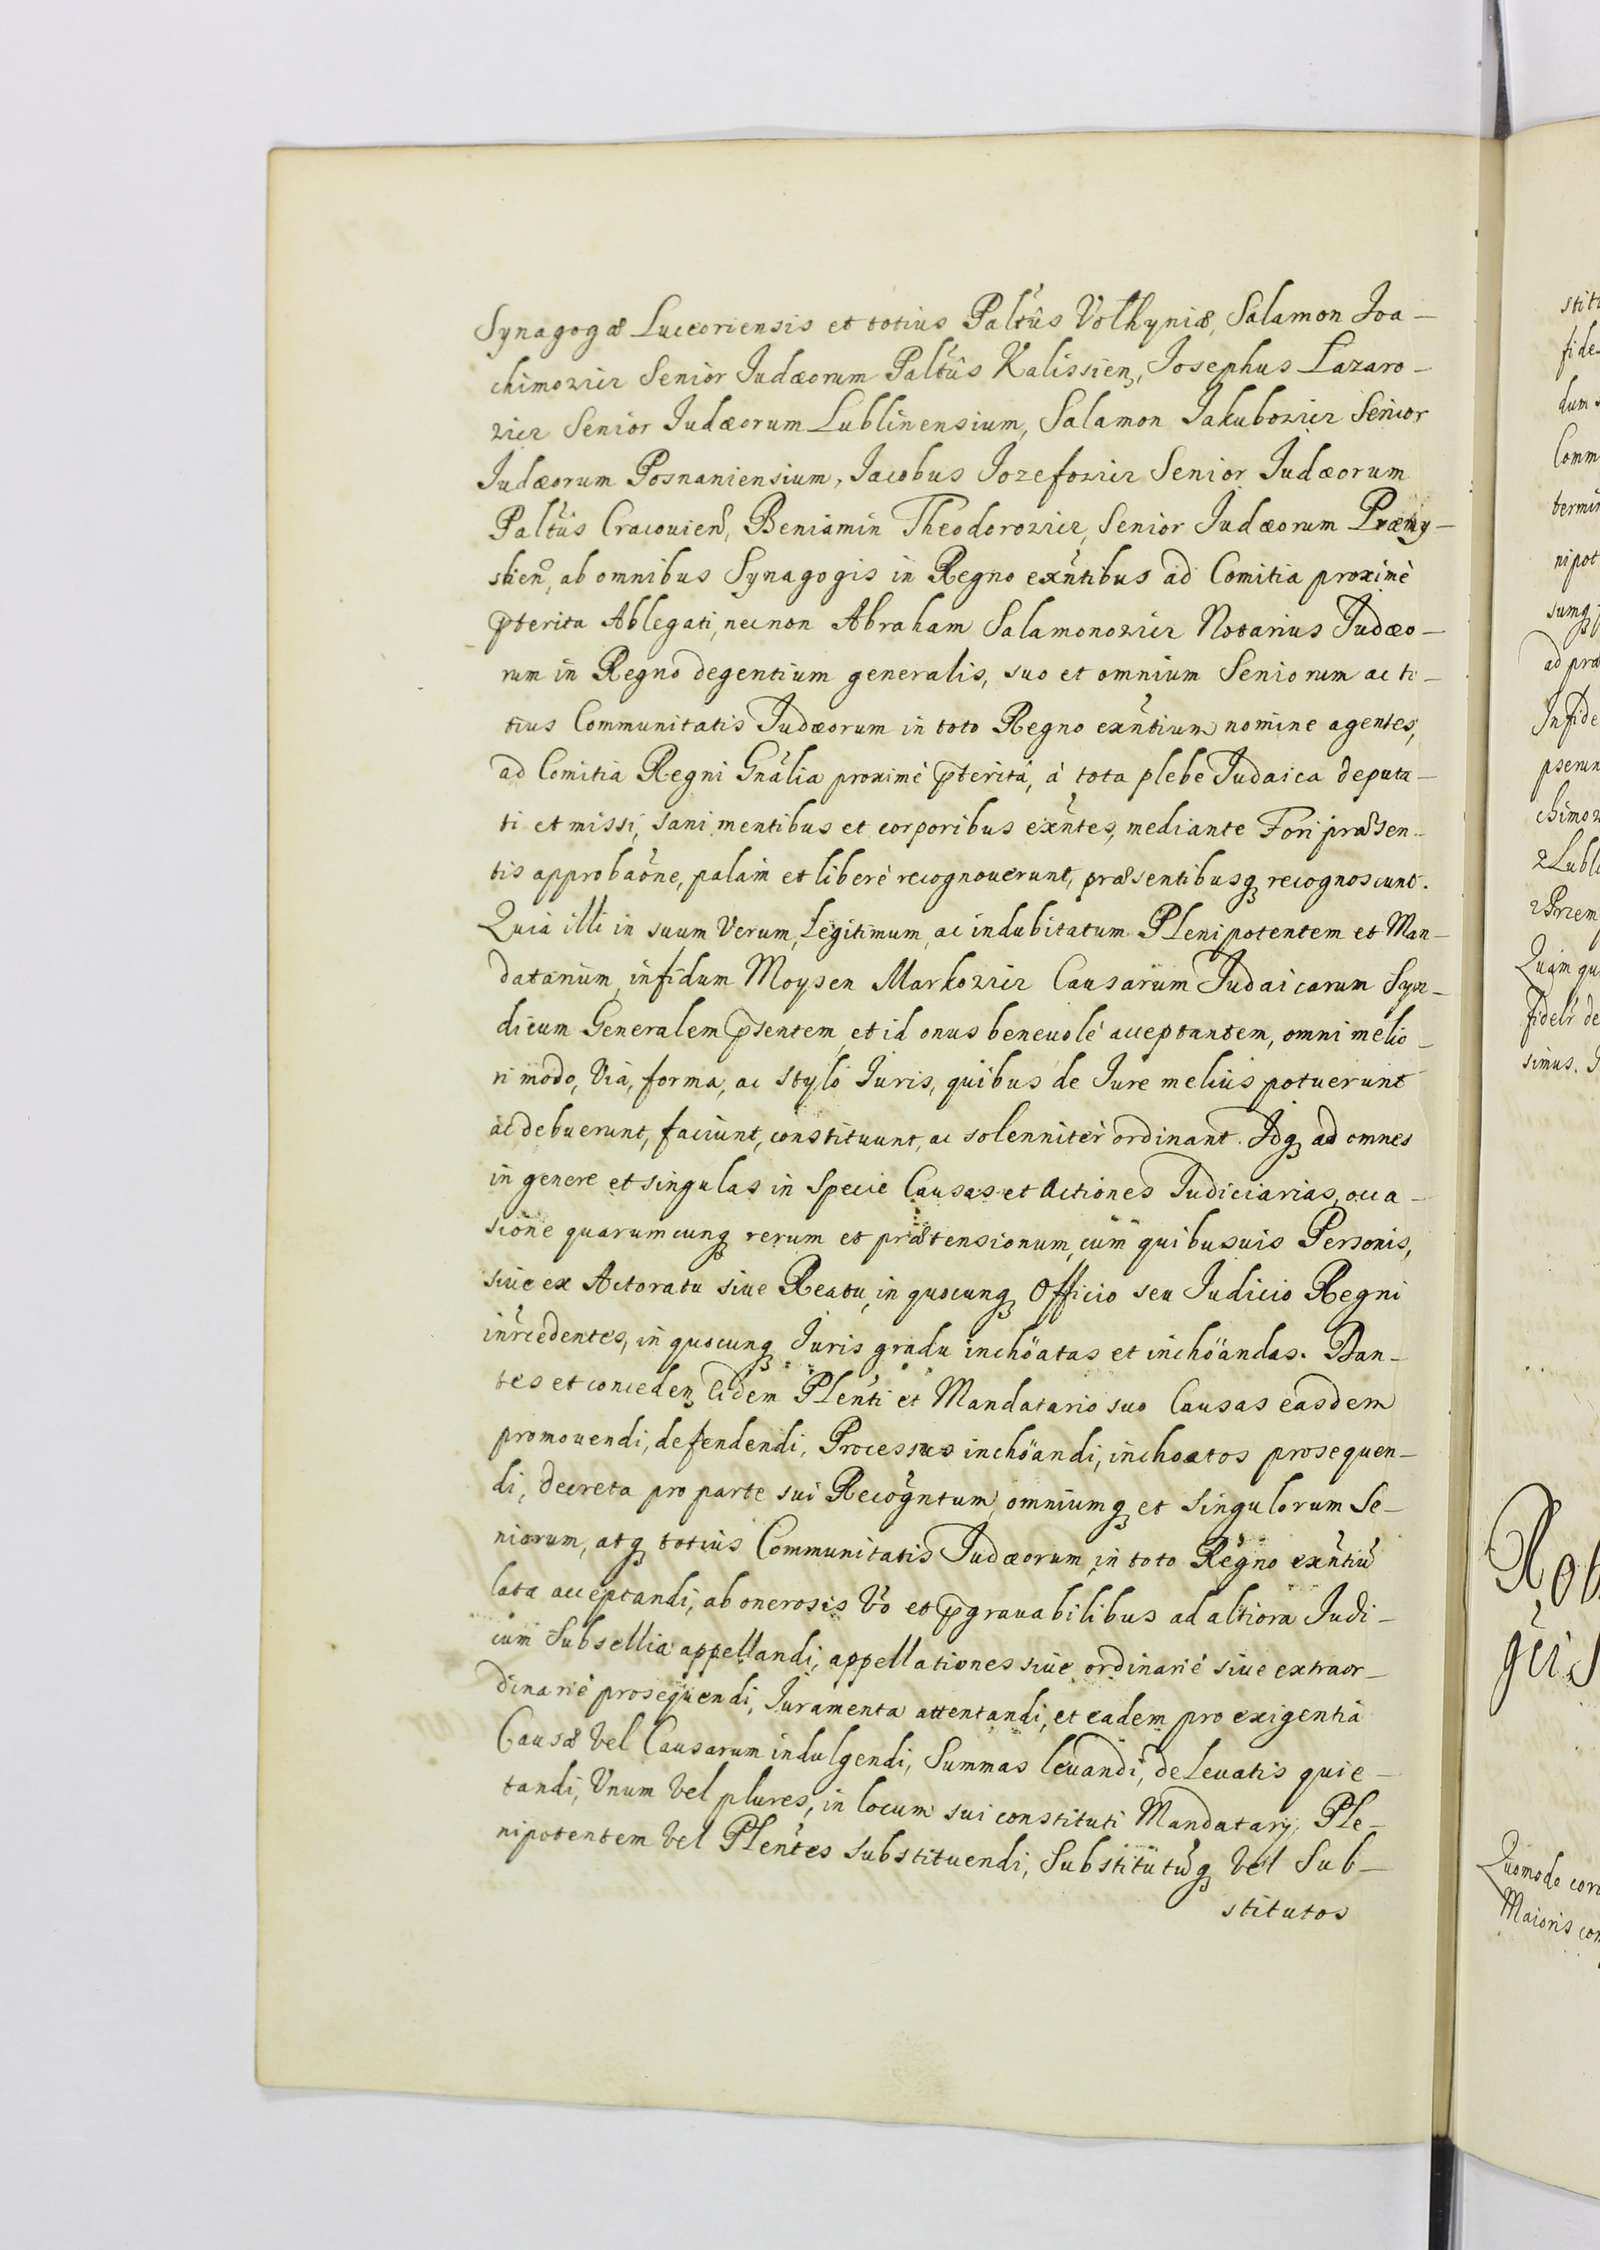 Synagogæ Luceoriensis et totius Paltûs Volhyniæ, Salamon Joa-
chimowicz Senior Judæorum Paltûs Kalissien, Josephus Lazaro-
wicz Senior Judæorum Lublinensium, Salamon Jakubowicz Senior
Judæorum Posnaniensium, Jacobus Jozefowicz Senior Judæorum
Paltûs Cracouien, Beniamin Theodorowicz, Senior Judæorum Præmy-
slien, ab omnibus Synagogis in Regno exntibus ad Comitia proximè
pterita Ablegati, necnon Abraham Salamonowicz Notarius Judæo-
rum in Regno degentium generalis, suo et omnium Seniorum ac to-
tius Communitatis Judæorum in toto Regno exntium nomine agentes,
ad Comitia Regni Gnalia proximè pterita, à tota plebe Judaica deputa-
ti et missi, sani mentibus et corporibus exntes, mediante Fori præsen-
tis approbaone, palam et liberè recognouerunt, præsentibusq recognoscunt.
Quia illi in suum Verum, Legitimum, ac indubitatum Plenipotentem et Man-
datarium, infidum Moysen Markowicz Causarum Judaicarum Syn-
dicum Generalem psentem, et id onus beneuolè acceptantem, omni melio-
ri modo, Via, forma, ac stylo Juris, quibus de Jure melius potuerunt
ac debuerunt, faciunt, constituunt, ac solenniter ordinant. Idq ad omnes
in genere et singulas in Specie Causas et Actiones Judiciarias, occa-
sione quarumcunq rerum et prætensionum, cum quibusuis Personis,
siue ex Actoratu siue Reatu, in quocunq Officio seu Judicio Regni
inrcedentes, in quocunq Juris gradu inchöatas et inchöandas. Dan-
tes et conceden Eidem Plenti et Mandatario suo Causas easdem
promouendi, defendendi, Processus inchöandi, inchoatos prosequen-
di, decreta pro parte sui Recogntum, omniumq et singulorum Se-
niorum, atq totius Communitatis Judæorum, in toto Regno exntiu
lata acceptandi, ab onerosis Vo et pgrauabilibus ad altiora Judi-
cum Subsellia appellandi, appellationes siue ordinariè siue extraor-
dinariè prosequendi, Juramenta attentandi, et eadem pro exigentia
Causæ Vel Causarum indulgendi, Summas leuandi, de Leuatis quie-
tandi, Vnum Vel plures, in locum sui constituti Mandatarij, Ple-
nipotentem Vel Plentes substituendi, Substitutuq Vel Sub-
stitutos
stit
fide
dum
Comm
termin
nipot
sumq
ad præ
Infide
pserun
chimow
Lubli
Przem
Quam qu
fideli de
simus. J
Rob
gus
Quomodo cor
Maioris con